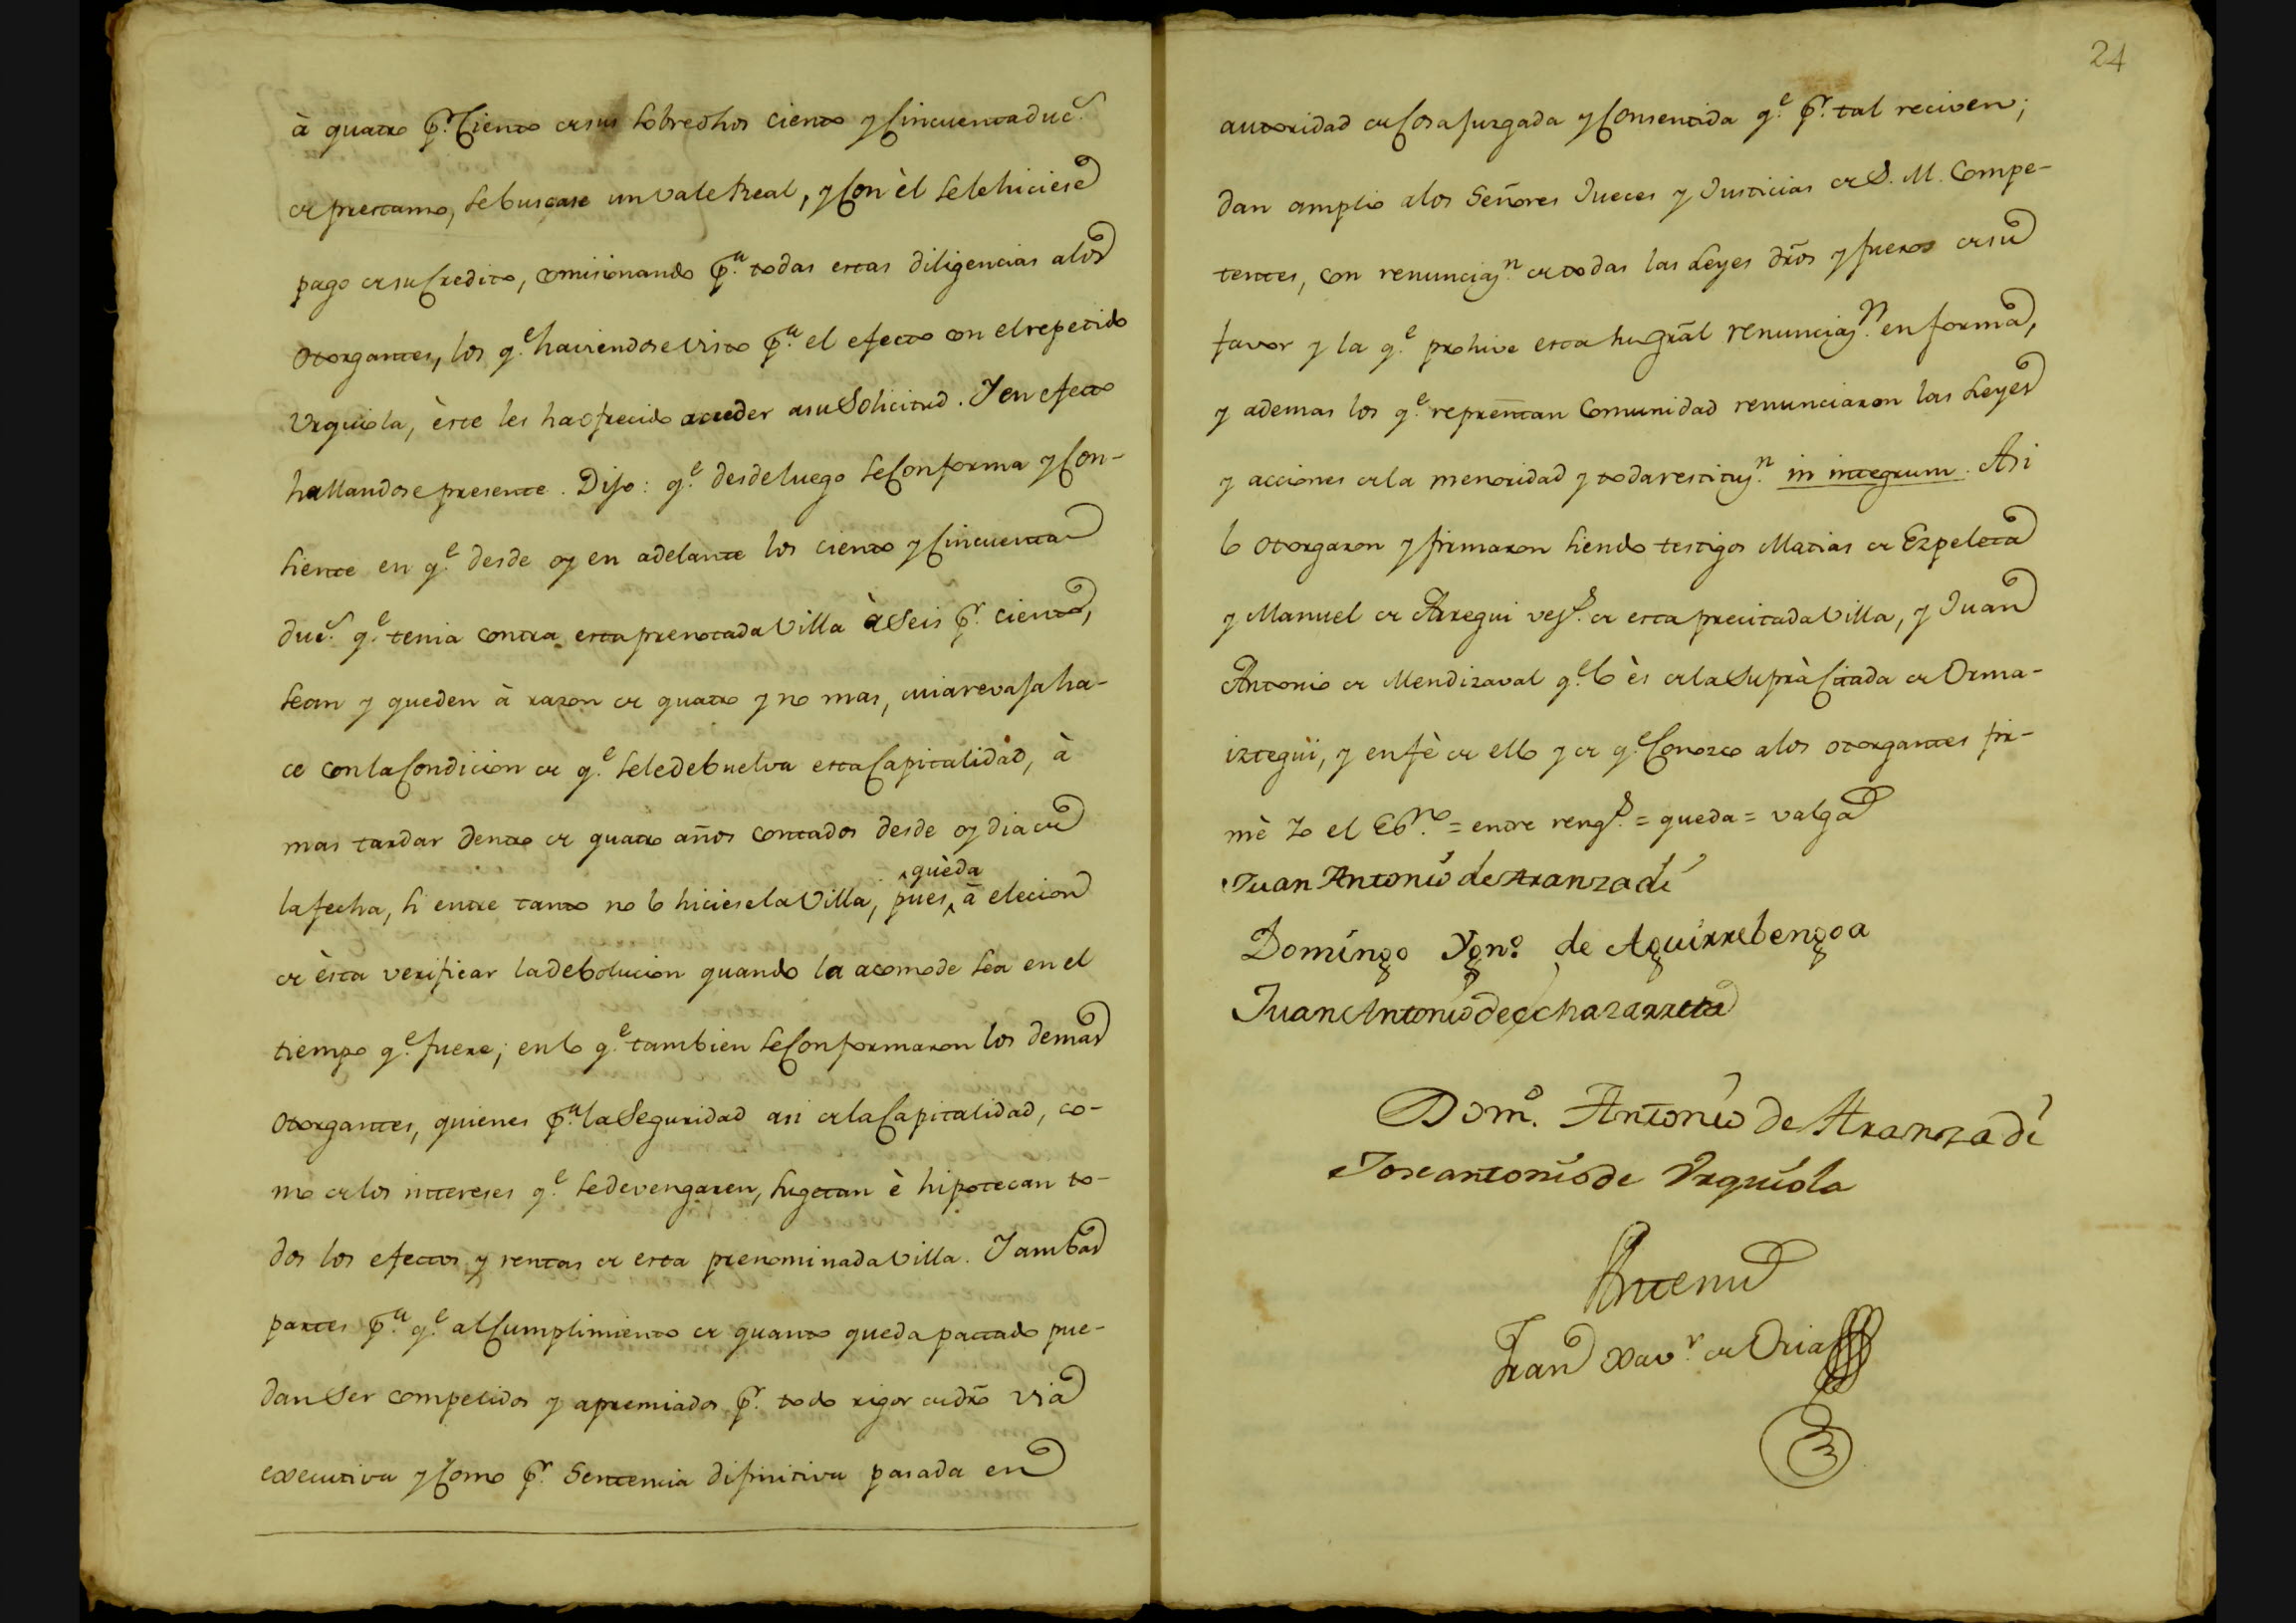 à quatro p.r Ciento de sus sobredhos ciento y Cincuenta duc.s
de prestamo, se buscase un Vale Real, y Con èl se le hiciese
pago de su Credito, comisionando p.a todas estas diligencias a los
otorgantes, los q.e haviendose visto p.a el efecto con el repetido
Urquiola, èste les ha ofrecido acceder a su Solicitud. Y en efecto
hallandose presente. Dijo: q.e desde luego se Conforma y Con-
siente en q.e desde oy en adelante los ciento y Cincuenta
duc.s q.e tenia contra esta prenotada Villa à Seis p.r ciento,
sean y queden à razon de quatro y no mas, cuia revaja ha-
ce con la Condicion de q.e se le debuelva esta Capitalidad, à
mas tardar dentro de quatro años contados desde oy dia de
queda
la fecha, si entre tanto no lo hiciese la Villa, pues, à elecion
de èsta verificar la debolucion quando la acomode sea en el
tiempo q.e fuere; en lo q.e tambien se Conformaron los demas
otorgantes, quienes p.a la Seguridad asi de la Capitalidad, co-
mo de los intereses q.e se devengaren, sugetan è hipotecan to-
dos los efectos y rentas de esta prenominada Villa. Y ambas
partes p.a q.e al Cumplimiento de quanto queda pactado pue-
dan Ser compelidos y apremiados p.r todo rigor de dro via
executiva y Como p.r Sentencia difinitiva pasada en
24
autoridad de Cosa juzgada y Consentida q.e p.r tal reciven;
dan amplio a los Señores Jueces y Justicias de S. M. Compe-
tentes, con renunciaz.n de todas las Leyes dros y fueros de su
favor y la q.e prohive esta su gral renunciaz.n en forma,
y ademas los q.e reprentan Comunidad renunciaron las Leyes
y acciones de la menoridad y toda restituz.n in integrum. Asi
lo otorgaron y firmaron siendo testigos Matias de Ezpeleta
y Manuel de Arregui vez.s de esta precitada Villa, y Juan
Antonio de Mendizaval q.e lo ès de la Suprà Citada de Orma-
iztegui, y en fè de ello y de q.e Conozco a los otorgantes fir-
mè Yo el Es.no = entre reng.s = queda = valga
Juan Antonio de Aranzadi
Domingo Ygn.o de Aguirrebengoa
Juan Antonio de echazarreta
Dom.o Antonio de Aranzadi
Jose antonio de Urquiola
Ante mi
Fran Xav.r de Oria